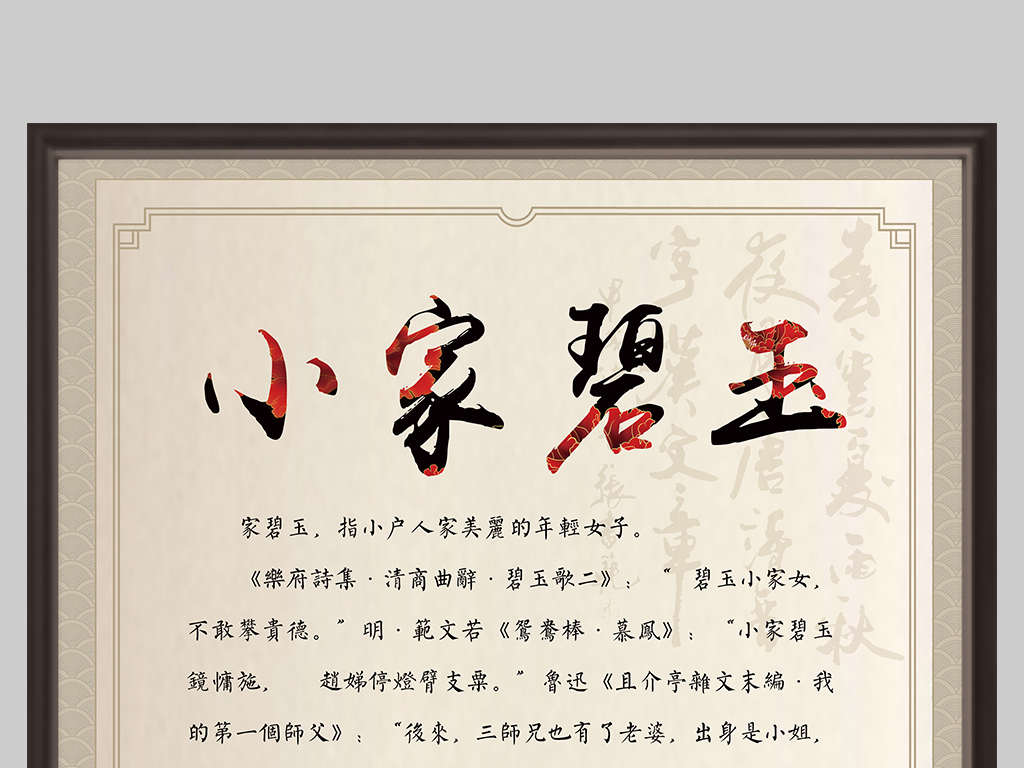 小家碧玉
家碧玉，指小户人家美麗的年輕女子。
《樂府詩集·清商曲辭·碧玉歌二》：“ 碧玉小家女，
不敢攀貴德。”明·範文若《鴛鴦棒·慕鳳》：“小家碧玉
鏡慵施， 趙娣停燈臂支粟。”魯迅《且介亭雜文末編·我
的第一個師父》：“後來，三師兄也有了老婆，出身是小姐，
春雲夏雨秋
夜月唐詩晉
字漢文章